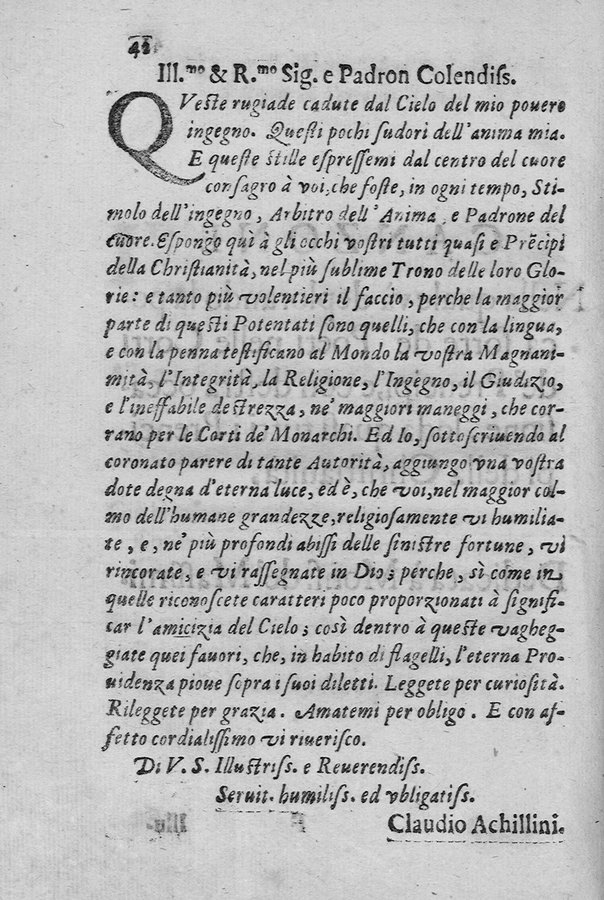 42
Ill.mo & R.mo Sig. e Padron Colendiſs.
QVeſte rugiade cadute dal Cielo del mio pouero
ingegno. Queſti pochi ſudori dell'anima mia.
E queſte ſtille eſpreſſemi dal centro del cuore
conſagro à voi, che foſte, in ogni tempo, Sti-
molo dell'ingegno, Arbitro dell'Anima, e Padrone del
cuore. Eſpongo quì à gli occhi voſtri tutti quaſi e Prẽcipi
della Chriſtianità, nel più ſublime Trono delle loro Glo-
rie: e tanto più volentieri il faccio, perche la maggior
parte di queſti Potentati ſono quelli, che con la lingua,
e con la penna teſtificano al Mondo la voſtra Magnani-
mità, l'Integrità, la Religione, l'Ingegno, il Giudizio,
e l'ineffabile deſtrezza, ne' maggiori maneggi, che cor-
rano per le Corti de' Monarchi. Ed Io, ſottoſcriuendo al
coronato parere di tante Autorità, aggiungo vna voſtra
dote degna d'eterna luce, ed è, che voi, nel maggior col-
mo dell'humane grandezze, religioſamente vi humilia-
te, e, ne' più profondi abiſſi delle ſiniſtre fortune, vi
rincorate, e vi raſſegnate in Dio; perche, sì come in
quelle riconoſcete caratteri poco proporzionati à ſignifi-
car l'amicizia del Cielo; così dentro à queſte vagheg-
giate quei fauori, che, in habito di flagelli, l'eterna Pro-
uidenza pioue ſopra i ſuoi diletti. Leggete per curioſità.
Rileggete per grazia. Amatemi per obligo. E con af-
fetto cordialiſſimo vi riueriſco.
Di V. S. Illuſtriſs. e Reuerendiſs.
Seruit. humiliſs. ed vbligatiſs.
Claudio Achillini.